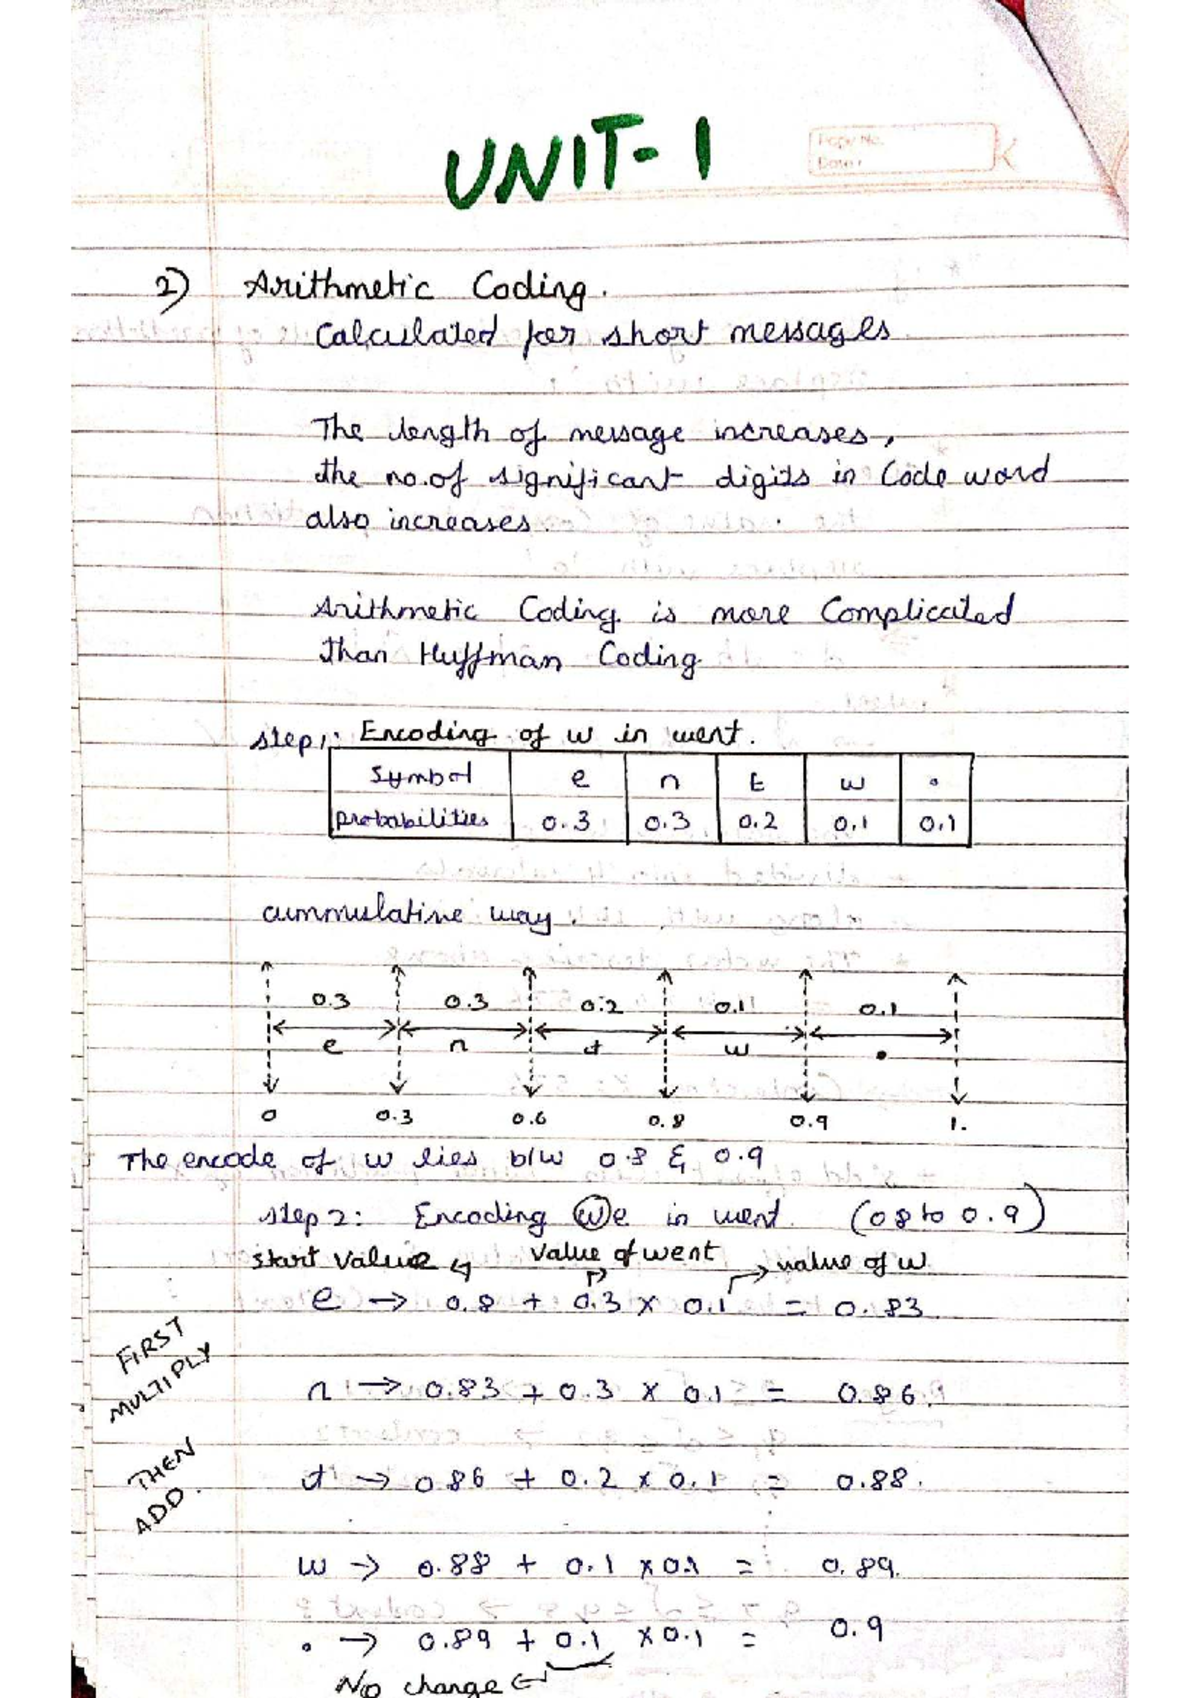 UNIT-1
Page No.
Date:
2) Arithmetic Coding.
Calculated for short messages.
The length of message increases,
the no.of significant digits in Code word
also increases.
Arithmetic Coding is more Complicated
than Huffman Coding
step1: Encoding of w in went.
Symbol e n t w .
probabilities 0.3 0.3 0.2 0.1 0.1
cummulative way.
0.3 0.3 0.2 0.1 0.1
e n t w .
0 0.3 0.6 0.8 0.9 1.
The encode of w lies b/w 0.8 & 0.9
step 2: Encoding we in went. (0.8 to 0.9)
start value value of went value of w
e → 0.8 + 0.3 x 0.1 = 0.83
FIRST
MULTIPLY
n → 0.83 + 0.3 x 0.1 = 0.86.
THEN
ADD.
t → 0.86 + 0.2 x 0.1 = 0.88.
w → 0.88 + 0.1 x 0.1 = 0.89.
. → 0.89 + 0.1 x 0.1 = 0.9
No change